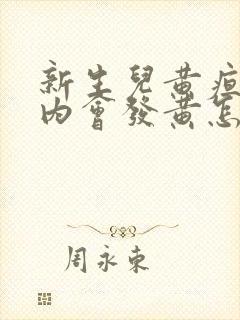 新生兒黃疸
內會發黃怎
周永東